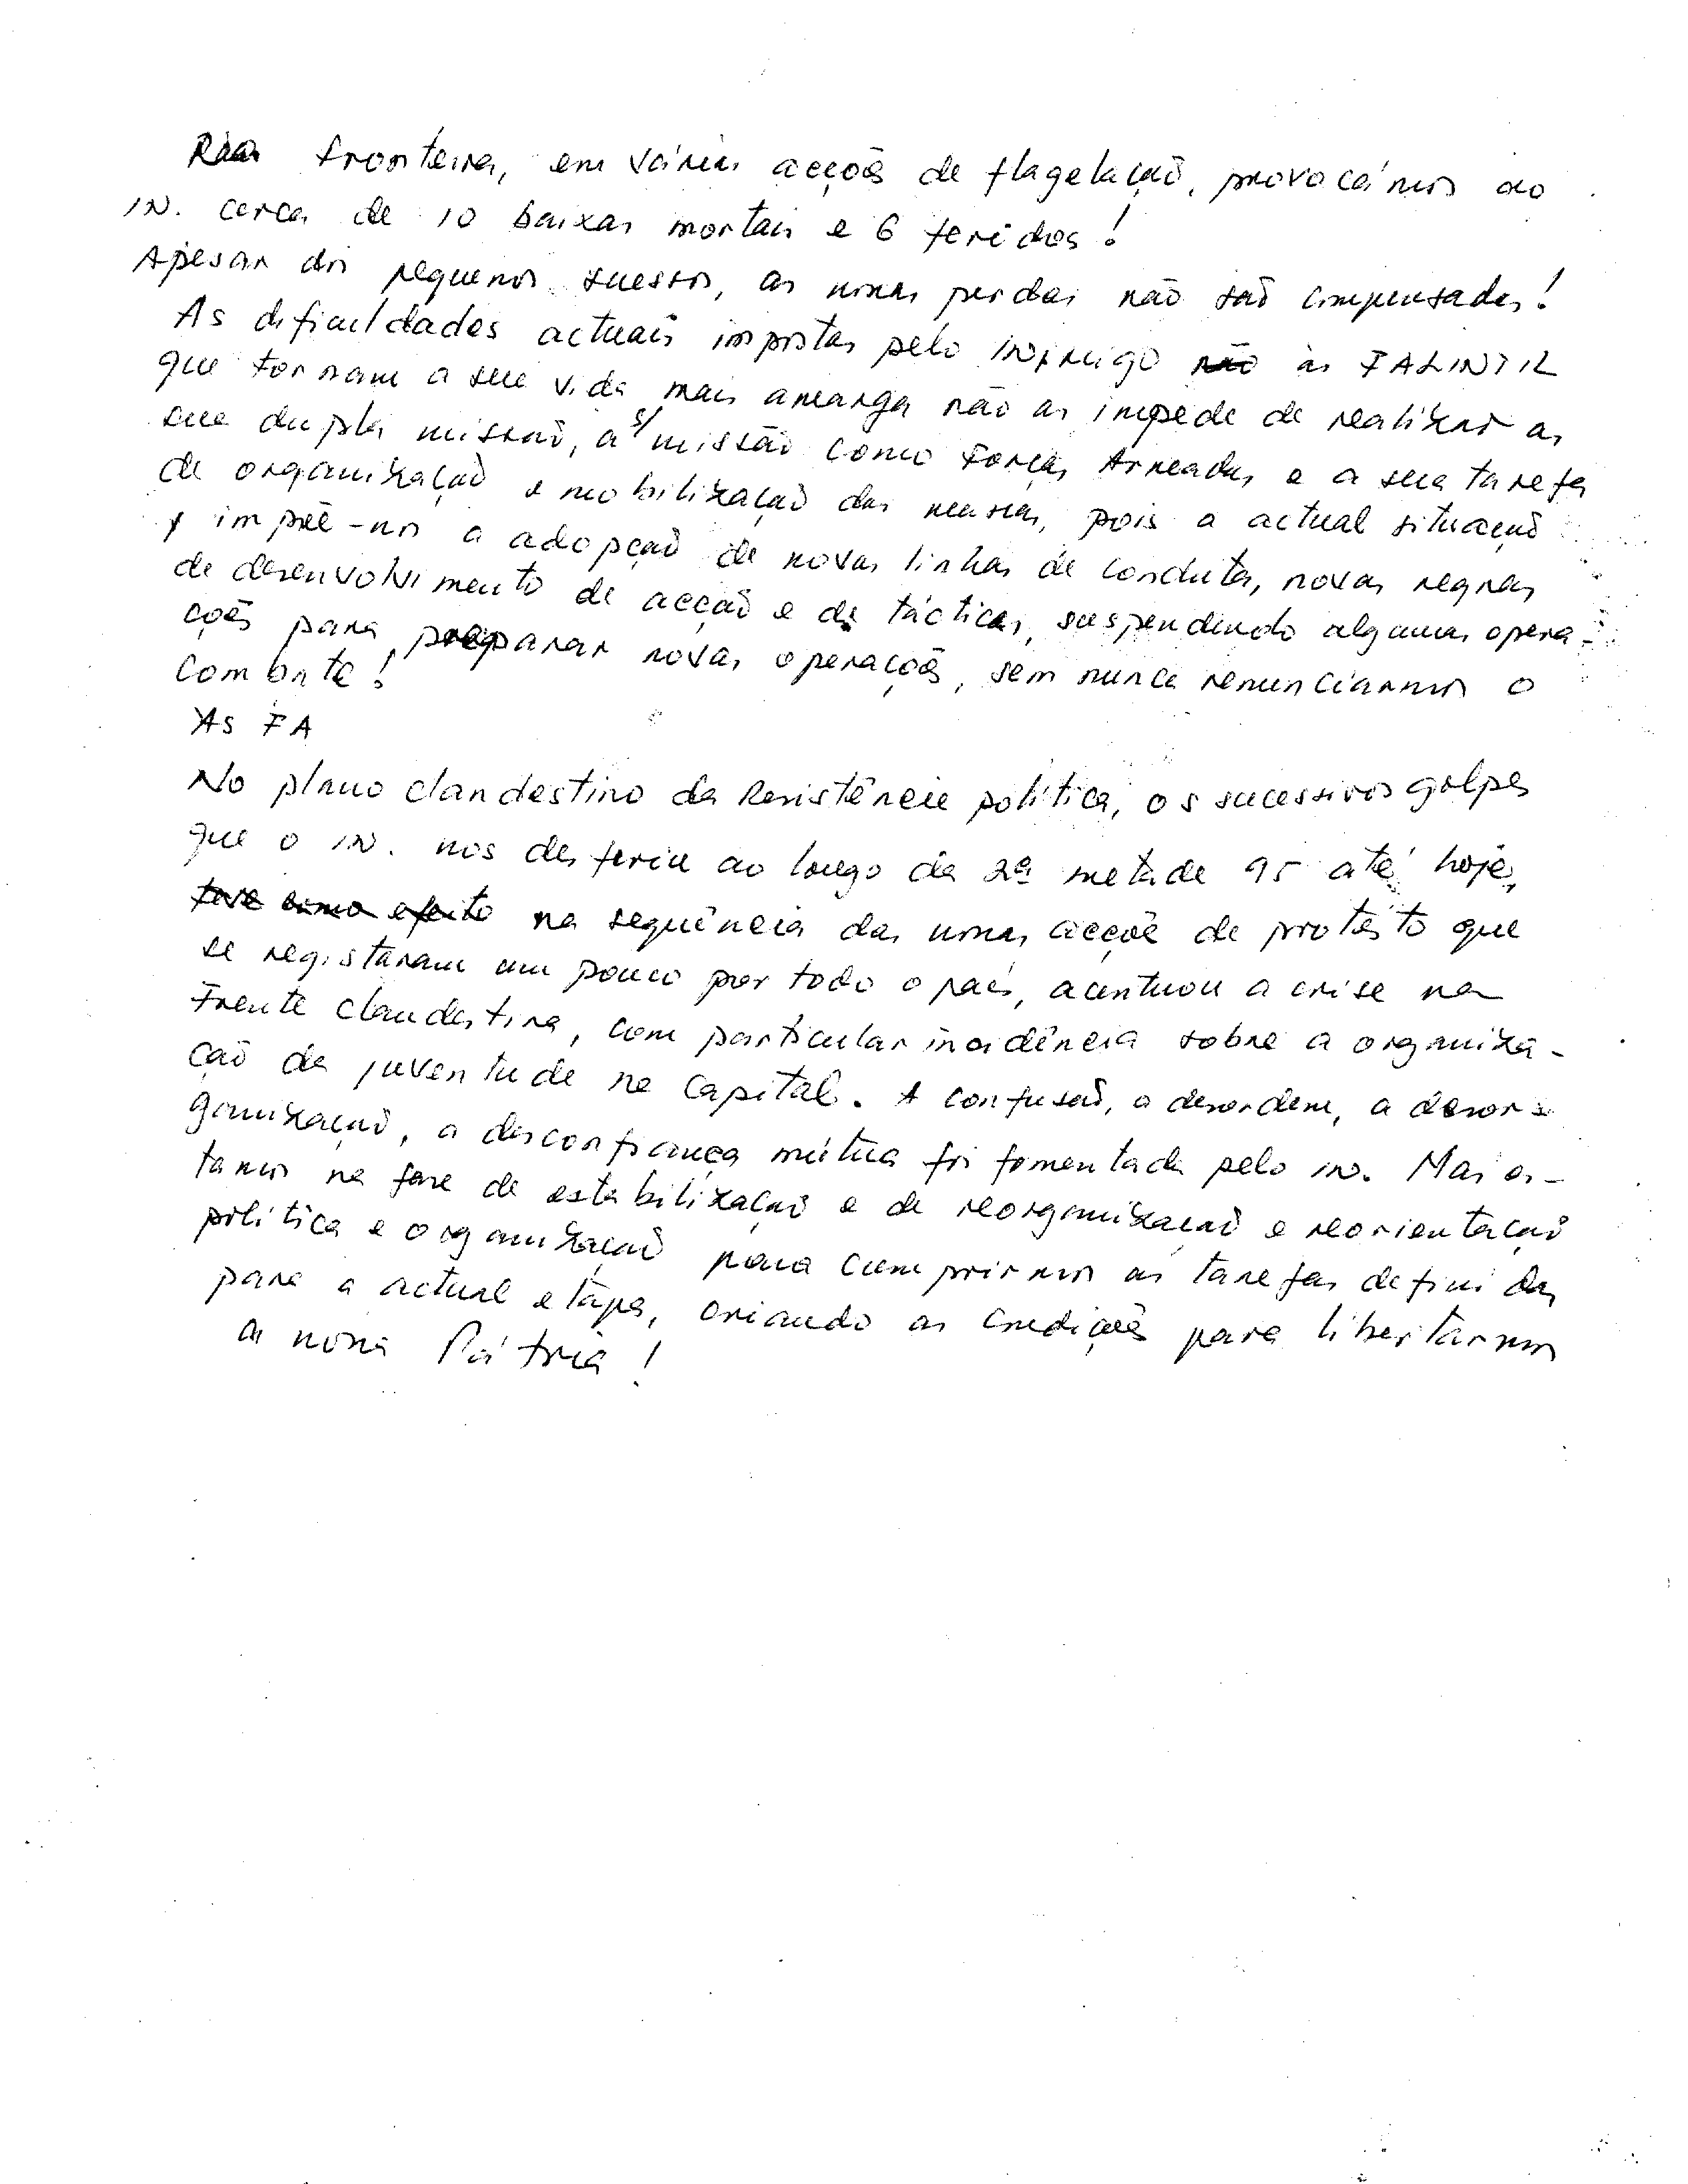 fronteira, em várias acções de flagelação, provocámos ao
IN. cerca de 10 baixas mortais e 6 feridos!
Apesar dos pequenos sucessos, as nossas perdas não são compensadas!
As dificuldades actuais impostas pelo inimigo não às FALINTIL
que tornam a sua vida mais amarga não as impede de realizar as
sua dupla missão, a s/ missão como Forças Armadas e a sua tarefa
de organização e mobilização das massas, pois a actual situação
impõe-nos a adopção de novas linhas de conduta, novas regras
de desenvolvimento de acção e de tácticas, suspendendo algumas opera-
ções para preparar novas operações, sem nunca renunciarmos o
combate!
As FA
No plano clandestino da Resistência política, os sucessivos golpes
que o IN. nos desferiu ao longo da 2ª metade 95 até hoje,
teve como efeito na sequência das nossas acções de protesto que
se registaram um pouco por todo o país, acentuou a crise na
Frente Clandestina, com particular incidência sobre a organiza-
ção da juventude na Capital. A confusão, a desordem, a desor-
ganização, a desconfiança mútua foi fomentada pelo IN. Mas es-
tamos na fase de estabilização e de reorganização e reorientação
política e organização para cumprirmos as tarefas definidas
para a actual etapa, criando as condições para libertarmos
a nossa Pátria!